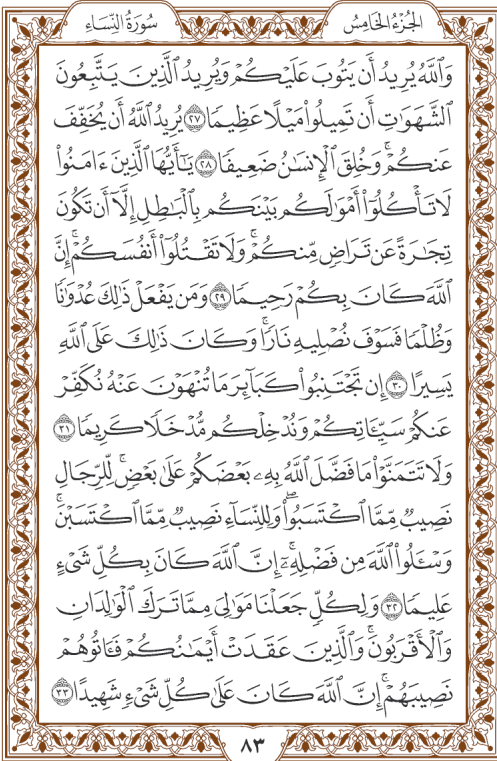 سُورَةُ النِّسَاءِ الجُزْءُ الخَامِسُ
وَٱللَّهُ يُرِيدُ أَن يَتُوبَ عَلَيْكُمْ وَيُرِيدُ ٱلَّذِينَ يَتَّبِعُونَ
ٱلشَّهَوَٰتِ أَن تَمِيلُوا۟ مَيْلًا عَظِيمًا ٢٧ يُرِيدُ ٱللَّهُ أَن يُخَفِّفَ
عَنكُمْ ۚ وَخُلِقَ ٱلْإِنسَٰنُ ضَعِيفًا ٢٨ يَٰٓأَيُّهَا ٱلَّذِينَ ءَامَنُوا۟
لَا تَأْكُلُوٓا۟ أَمْوَٰلَكُم بَيْنَكُم بِٱلْبَٰطِلِ إِلَّآ أَن تَكُونَ
تِجَٰرَةً عَن تَرَاضٍ مِّنكُمْ ۚ وَلَا تَقْتُلُوٓا۟ أَنفُسَكُمْ ۚ إِنَّ
ٱللَّهَ كَانَ بِكُمْ رَحِيمًا ٢٩ وَمَن يَفْعَلْ ذَٰلِكَ عُدْوَٰنًا
وَظُلْمًا فَسَوْفَ نُصْلِيهِ نَارًا ۚ وَكَانَ ذَٰلِكَ عَلَى ٱللَّهِ
يَسِيرًا ٣٠ إِن تَجْتَنِبُوا۟ كَبَآئِرَ مَا تُنْهَوْنَ عَنْهُ نُكَفِّرْ
عَنكُمْ سَيِّـَٔاتِكُمْ وَنُدْخِلْكُم مُّدْخَلًا كَرِيمًا ٣١
وَلَا تَتَمَنَّوْا۟ مَا فَضَّلَ ٱللَّهُ بِهِۦ بَعْضَكُمْ عَلَىٰ بَعْضٍ ۚ لِّلرِّجَالِ
نَصِيبٌ مِّمَّا ٱكْتَسَبُوا۟ ۖ وَلِلنِّسَآءِ نَصِيبٌ مِّمَّا ٱكْتَسَبْنَ ۚ
وَسْـَٔلُوا۟ ٱللَّهَ مِن فَضْلِهِۦٓ ۗ إِنَّ ٱللَّهَ كَانَ بِكُلِّ شَىْءٍ
عَلِيمًا ٣٢ وَلِكُلٍّ جَعَلْنَا مَوَٰلِىَ مِمَّا تَرَكَ ٱلْوَٰلِدَانِ
وَٱلْأَقْرَبُونَ ۚ وَٱلَّذِينَ عَقَدَتْ أَيْمَٰنُكُمْ فَـَٔاتُوهُمْ
نَصِيبَهُمْ ۚ إِنَّ ٱللَّهَ كَانَ عَلَىٰ كُلِّ شَىْءٍ شَهِيدًا ٣٣
٨٣